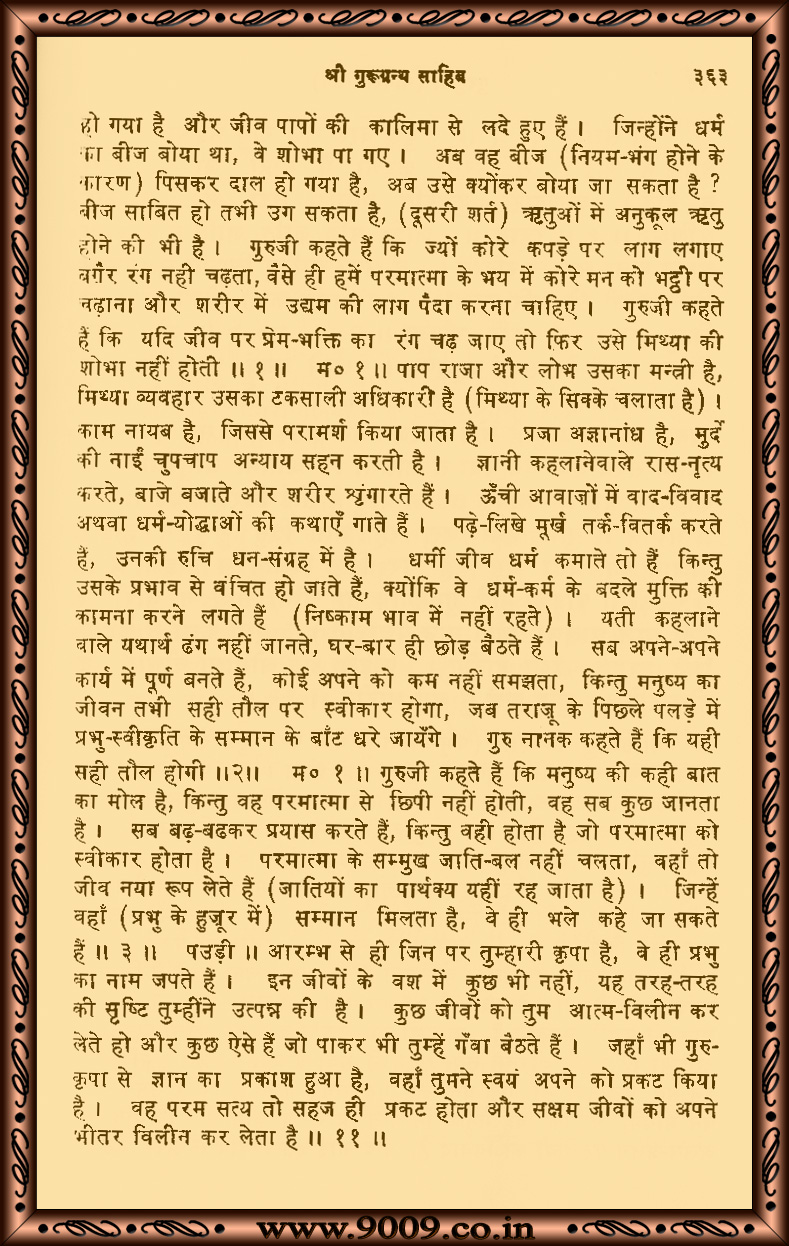 श्री गुरूग्रन्थ साहिब ३६३
हो गया है और जीव पापों की कालिमा से लदे हुए हैं। जिन्होंने धर्म
का बीज बोया था, वे शोभा पा गए। अब वह बीज (नियम-भंग होने के
कारण) पिसकर दाल हो गया है, अब उसे क्योंकर बोया जा सकता है ?
बीज साबित हो तभी उग सकता है, (दूसरी शर्त) ऋतुओं में अनुकूल ऋतु
होने की भी है। गुरुजी कहते हैं कि ज्यों कोरे कपड़े पर लाग लगाए
बग़ैर रंग नहीं चढ़ता, वैसे ही हमें परमात्मा के भय में कोरे मन को भट्ठी पर
चढ़ाना और शरीर में उद्यम की लाग पैदा करना चाहिए। गुरुजी कहते
हैं कि यदि जीव पर प्रेम-भक्ति का रंग चढ़ जाए तो फिर उसे मिथ्या की
शोभा नहीं होती ॥ १ ॥ म० १ ॥ पाप राजा और लोभ उसका मन्त्री है,
मिथ्या व्यवहार उसका टकसाली अधिकारी है (मिथ्या के सिक्के चलाता है)।
काम नायब है, जिससे परामर्श किया जाता है। प्रजा अज्ञानांध है, मुर्दे
की नाईं चुपचाप अन्याय सहन करती है। ज्ञानी कहलानेवाले रास-नृत्य
करते, बाजे बजाते और शरीर शृंगारते हैं। ऊँची आवाज़ों में वाद-विवाद
अथवा धर्म-योद्धाओं की कथाएँ गाते हैं। पढ़े-लिखे मूर्ख तर्क-वितर्क करते
हैं, उनकी रुचि धन-संग्रह में है। धर्मी जीव धर्म कमाते तो हैं किन्तु
उसके प्रभाव से वंचित हो जाते हैं, क्योंकि वे धर्म-कर्म के बदले मुक्ति की
कामना करने लगते हैं (निष्काम भाव में नहीं रहते)। यती कहलाने
वाले यथार्थ ढंग नहीं जानते, घर-बार ही छोड़ बैठते हैं। सब अपने-अपने
कार्य में पूर्ण बनते हैं, कोई अपने को कम नहीं समझता, किन्तु मनुष्य का
जीवन तभी सही तौल पर स्वीकार होगा, जब तराजू के पिछले पलड़े में
प्रभु-स्वीकृति के सम्मान के बाँट धरे जायेंगे। गुरु नानक कहते हैं कि यही
सही तौल होगी ॥२॥ म० १ ॥ गुरुजी कहते हैं कि मनुष्य की कही बात
का मोल है, किन्तु वह परमात्मा से छिपी नहीं होती, वह सब कुछ जानता
है। सब बढ़-बढकर प्रयास करते हैं, किन्तु वही होता है जो परमात्मा को
स्वीकार होता है। परमात्मा के सम्मुख जाति-बल नहीं चलता, वहाँ तो
जीव नया रूप लेते हैं (जातियों का पार्थक्य यहीं रह जाता है)। जिन्हें
वहाँ (प्रभु के हुजूर में) सम्मान मिलता है, वे ही भले कहे जा सकते
हैं ॥ ३ ॥ पउड़ी ॥ आरम्भ से ही जिन पर तुम्हारी कृपा है, वे ही प्रभु
का नाम जपते हैं। इन जीवों के वश में कुछ भी नहीं, यह तरह-तरह
की सृष्टि तुम्हींने उत्पन्न की है। कुछ जीवों को तुम आत्म-विलीन कर
लेते हो और कुछ ऐसे हैं जो पाकर भी तुम्हें गँवा बैठते हैं। जहाँ भी गुरु-
कृपा से ज्ञान का प्रकाश हुआ है, वहाँ तुमने स्वयं अपने को प्रकट किया
है। वह परम सत्य तो सहज ही प्रकट होता और सक्षम जीवों को अपने
भीतर विलीन कर लेता है ॥ ११ ॥
www.9009.co.in